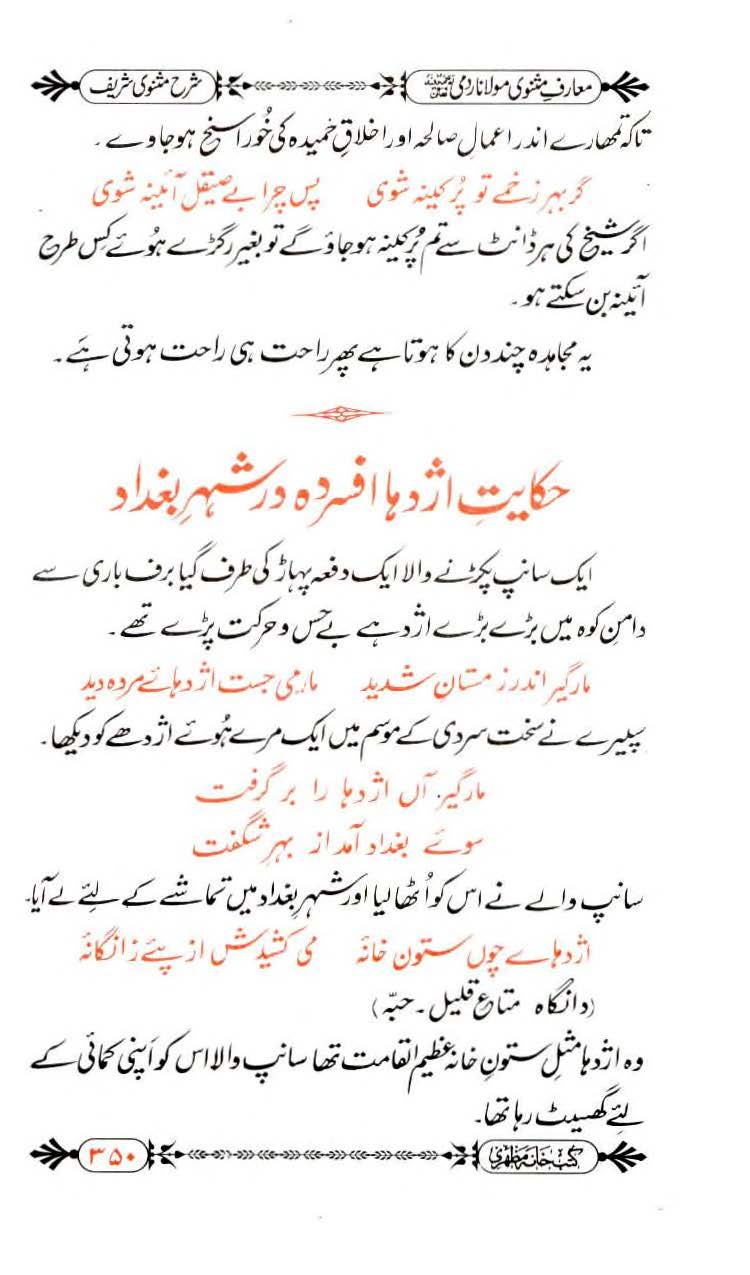 معارفِ مثنوی مولانا رومی
شرح مثنوی شریف
تاکہ تمھارے اندر اعمالِ صالحہ اور اخلاقِ حمیدہ کی خُو راسخ ہو جاوے۔
گر بہر زخمے تو پُر کینہ شوی پس چرا بے صیقل آئینہ شوی
اگر شیخ کی ہر ڈانٹ سے تم پُر کینہ ہو جاؤ گے تو بغیر رگڑے ہُوئے کِس طرح
آئینہ بن سکتے ہو۔
یہ مجاہدہ چند دن کا ہوتا ہے پھر راحت ہی راحت ہوتی ہَے۔
حکایتِ اژدہا افسردہ در شہرِ بغداد
ایک سانپ پکڑنے والا ایک دفعہ پہاڑ کی طرف گیا برف باری سے
دامنِ کوہ میں بڑے بڑے اژدہے بے حِس و حرکت پڑے تھے۔
مارگیر اندر زمستانِ شدید مار می جست اژدہائے مردہ دید
سپیرے نے سخت سردی کے موسم میں ایک مرے ہُوئے اژدھے کو دیکھا۔
مارگیر آں اژدہا را بر گرفت
سوئے بغداد آمد از بہر شگفت
سانپ والے نے اس کو اُٹھا لیا اور شہرِ بغداد میں تماشے کے لئے لے آیا۔
اژدہاے چوں ستون خانۂ می کشیدش از پئے زانگانۂ
(دانگاہ متاع قلیل۔ حبّہ)
وہ اژدہا مثلِ ستونِ خانہ عظیم القامت تھا سانپ والا اس کو اَپنی کمائی کے
لئے گھسیٹ رہا تھا۔
کتب خانہ مظہری
۳۵۰